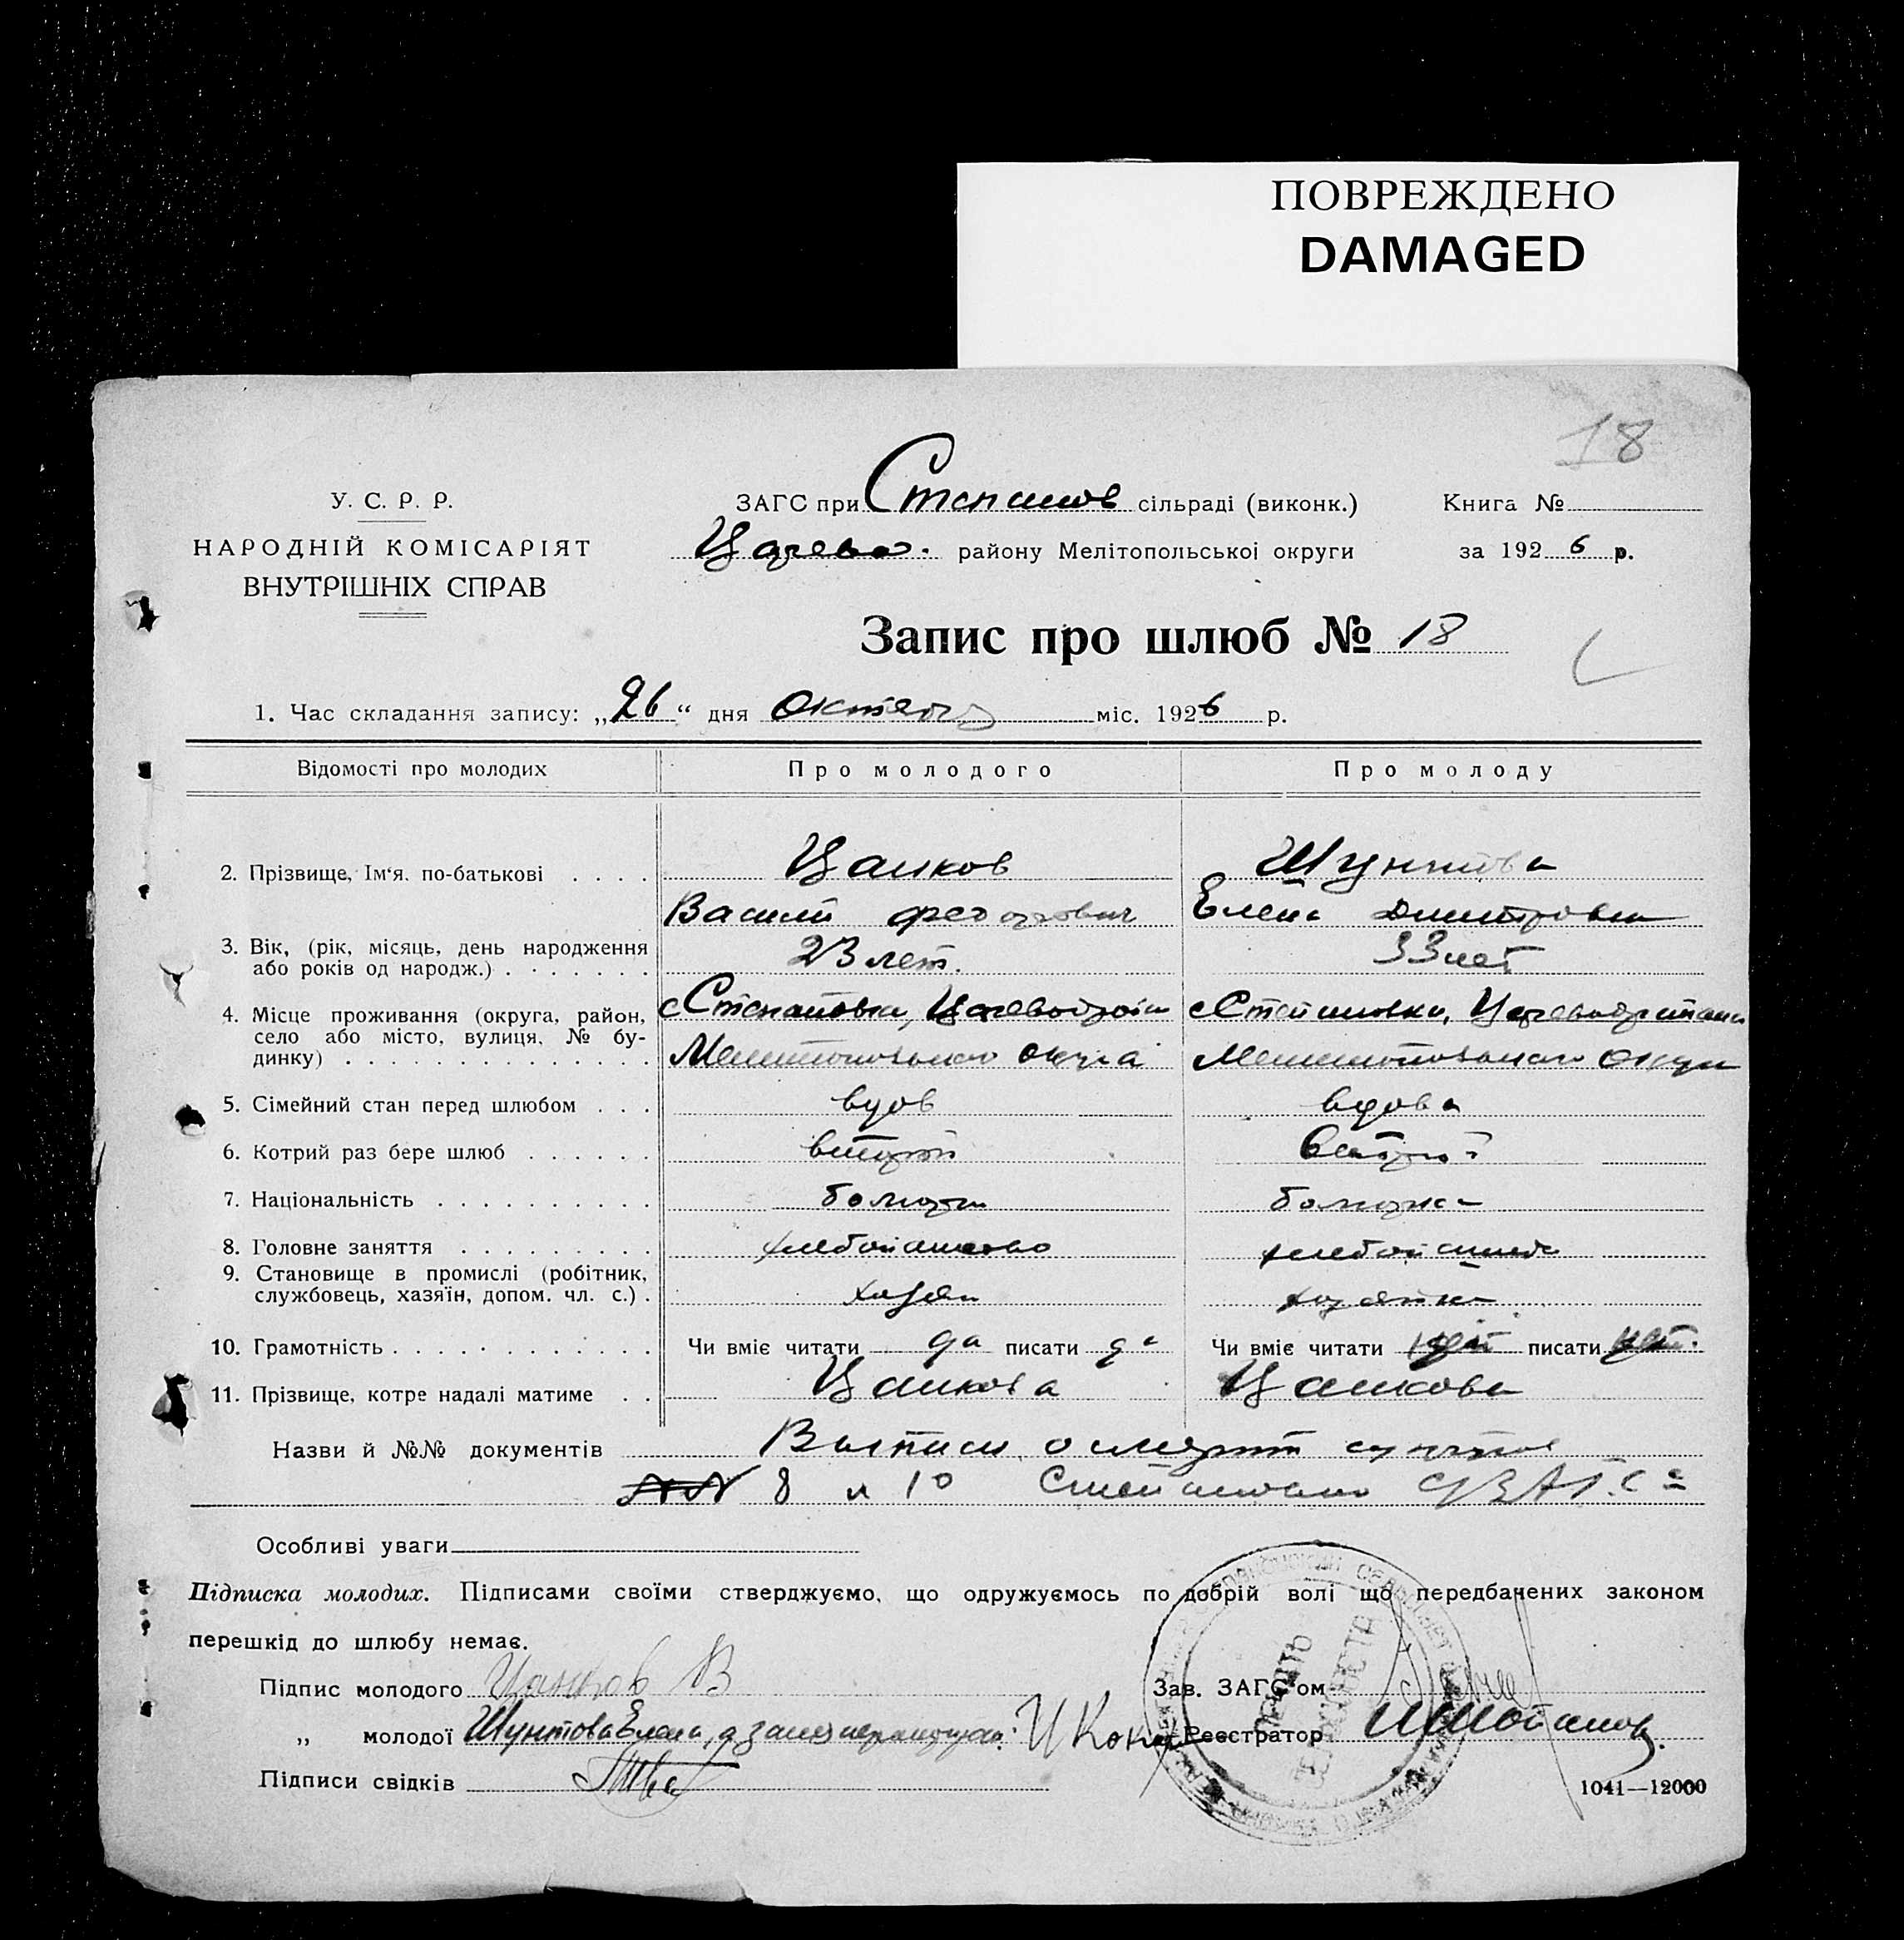 ПОВРЕЖДЕНО
DAMAGED
18
У. С. Р. Р.
НАРОДНІЙ КОМІСАРІЯТ
ВНУТРІШНІХ СПРАВ
ЗАГС при Степанов сільраді (виконк.)
Царево. району Мелітопольської округи
Книга №
за 1926 р.
Запис про шлюб № 18
1. Час складання запису: „26“ дня Октября міс. 1926 р.
Відомості про молодих Про молодого Про молоду
2. Прізвище, Ім‘я, по-батькові . . . . Цанков Шунтова
Василий Федорович Елена Дмитровна
3. Вік, (рік, місяць, день народження
або років од народж.) . . . . . . . 23 лет. 33 лет
4. Місце проживання (округа, район,
село або місто, вулиця, № бу-
динку) . . . . . . . . . . . . . .
с Степановка, с Степановка,
Мелитопольского округа Мелитопольского округа
5. Сімейний стан перед шлюбом . . . вдов вдова
6. Котрий раз бере шлюб . . . . . . второй второй
7. Національність . . . . . . . . . . болгарин болгарка
8. Головне заняття . . . . . . . . . хлебопашество
9. Становище в промислі (робітник,
службовець, хазяїн, допом. чл. с.) . хозяин хозяйка
10. Грамотність . . . . . . . . . . . . . Чи вміє читати да писати да Чи вміє читати нет писати нет.
11. Прізвище, котре надалі матиме . . Цанков Цанкова
Назви й №№ документів Выписи о смерти
№№ 8 и 10 ЗАГС
Особливі уваги
Підписка молодих. Підписами своїми стверджуємо, що одружуємось по добрій волі що передбачених законом
перешкід до шлюбу немає.
Підпис молодого Цанков В Зав. ЗАГС‘ом
„ молодої Шунтова Елена, а за неё неграмотную: Реєстратор
Підписи свідків
ПЕЧАТЬ
СЕЛЬСОВЕТА
1041—12000